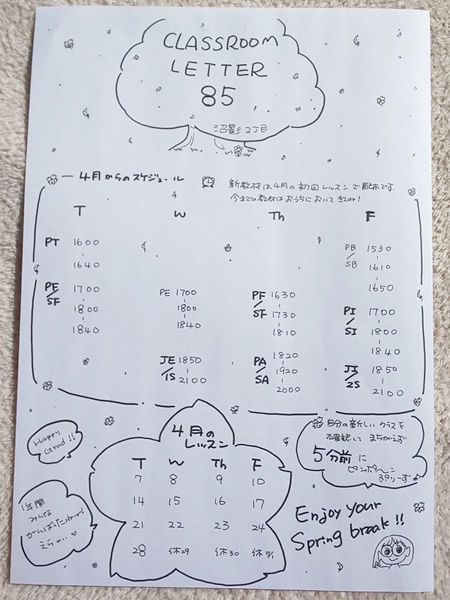 CLASSROOM
LETTER
85
沼影2丁目
4月からのスケジュール
新教材は4月の初回レッスンで配布です。
今までの教材はおうちにおいてきてね!
T W Th F
PT 1600
1640
PE/SF 1700
1800
1840
PE 1700
1800
1840
JE/IS 1850
2100
PF/SF 1630
1730
1810
PA/SA 1820
1920
2000
PB/SB 1530
1610
1650
PI/SI 1700
1800
1840
JI/2S 1850
2100
Happy
Good!!
1年間
みんな
がんばったねっ!
えらい
4月の
レッスン
T W Th F
7 8 9 10
14 15 16 17
21 22 23 24
28 休29 休30 休5/1
自分の新しいクラスを
確認して まちがえず
5分前に
ピンポーン
ぷりーず
Enjoy your
Spring break!!